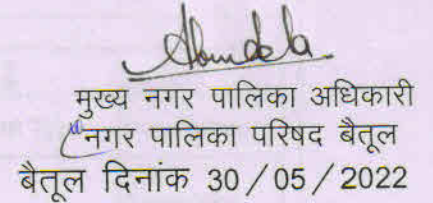 मुख्य नगर पालिका अधिकारी
नगर पालिका परिषद बैतूल
बैतूल दिनांक 30 / 05 / 2022